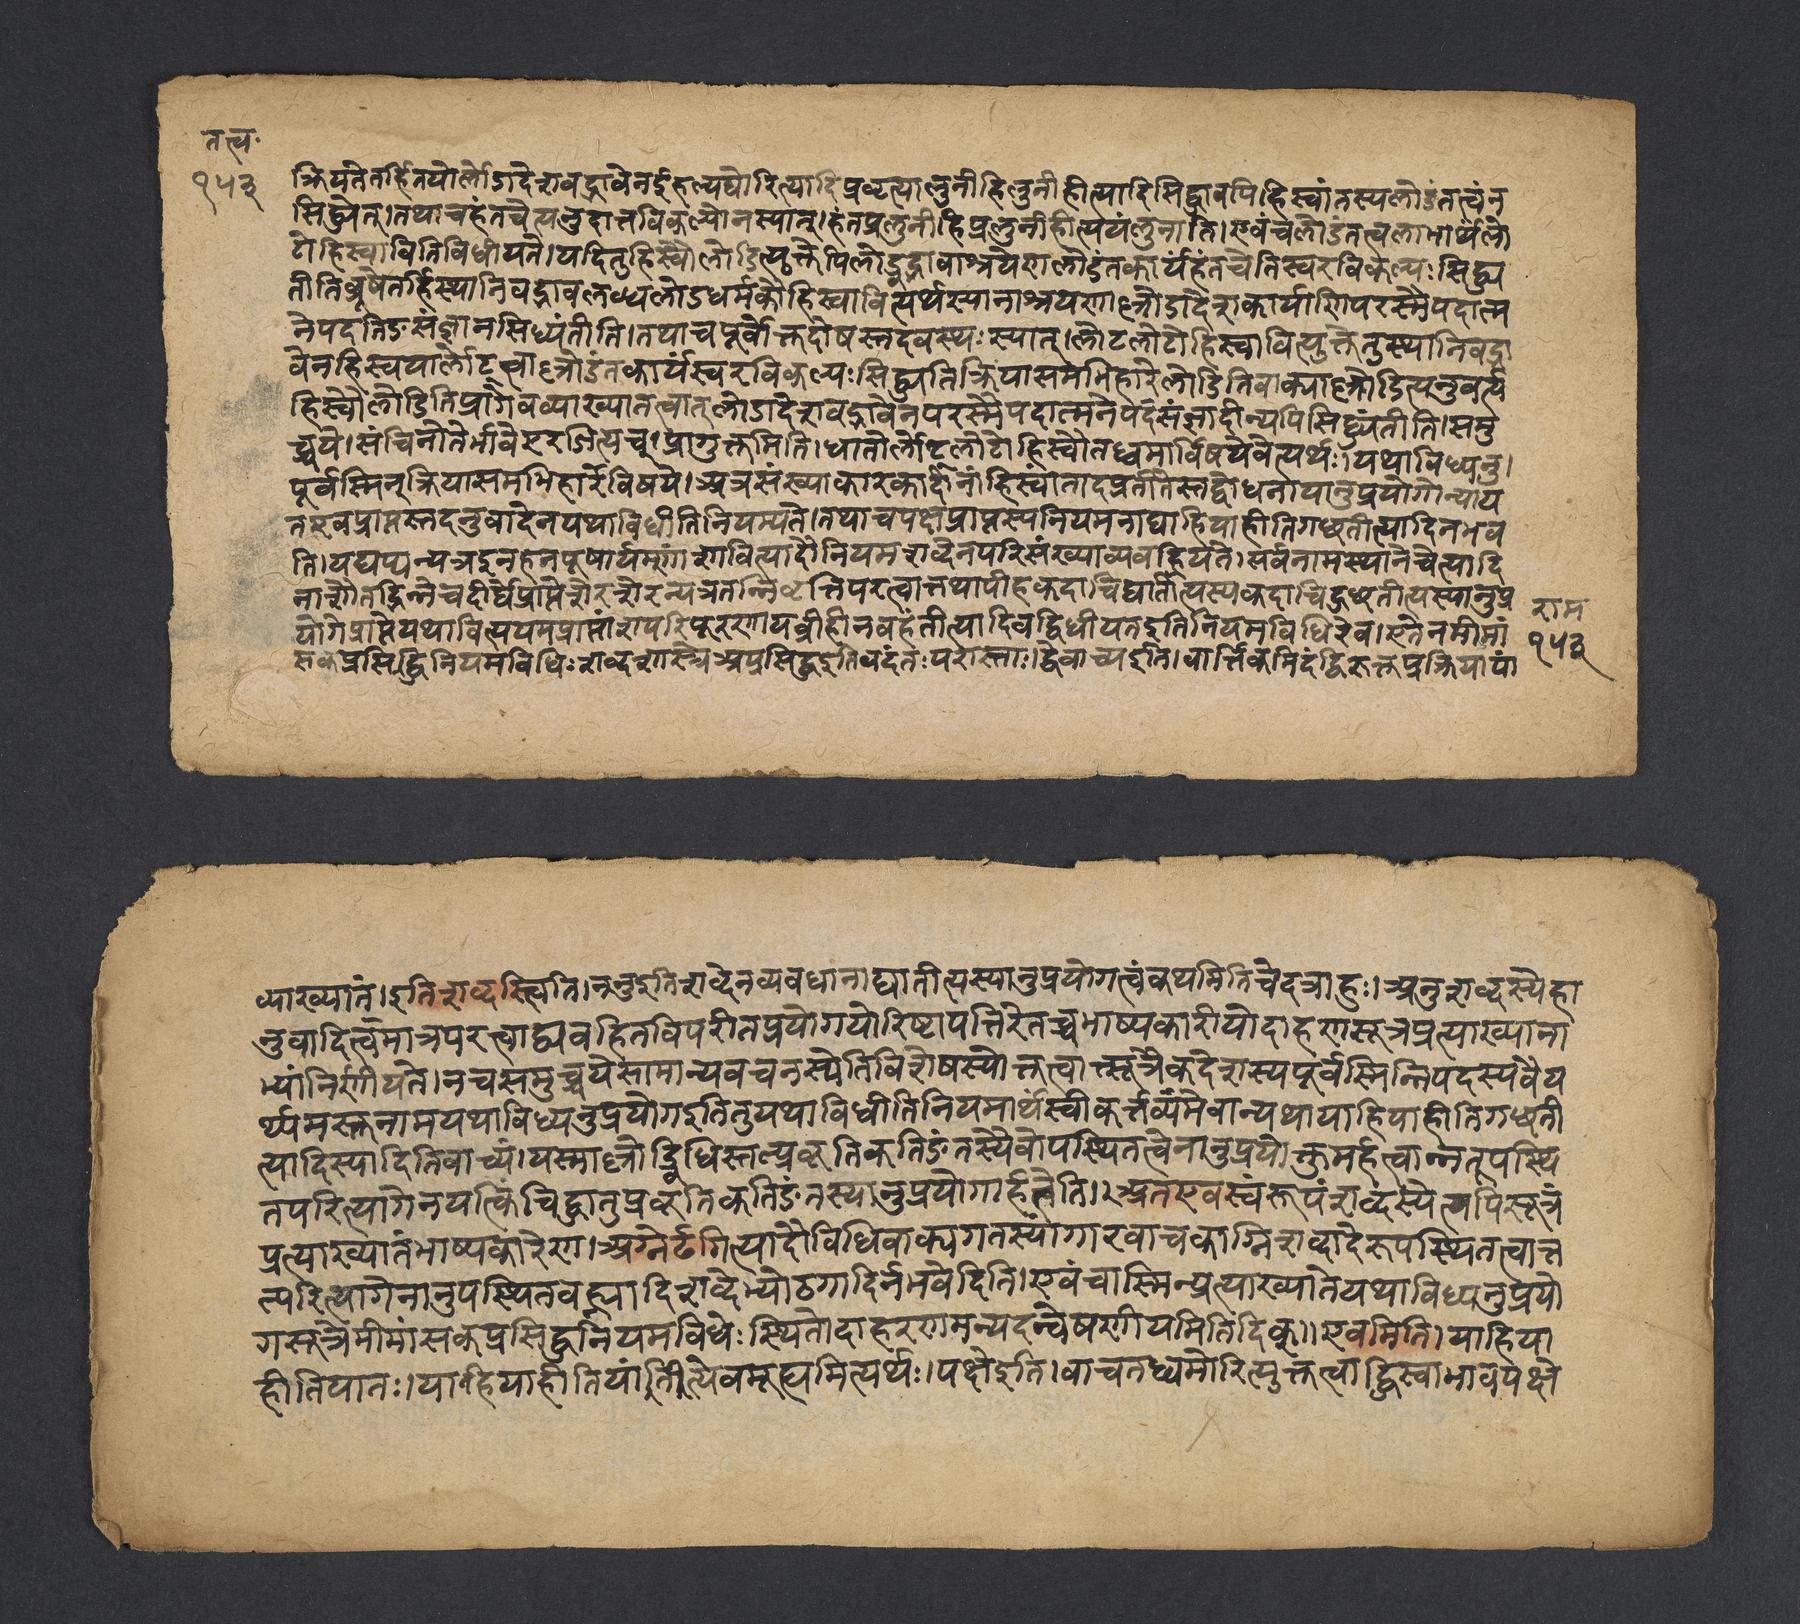 तत्त्व॰
१५३
क्रियतेतर्हितयोर्लोडादेशवद्भावेनदुंहल्यघोरित्यादिप्रवृत्यालुनीहिलुनीहीत्यादिसिद्धावपि।हिस्वांतस्यलोडंतत्वंन
सिद्ध्येत्।तथाचहंतचेत्यनुदात्तविकल्पोनस्यात्।हंतप्रलुनीहिप्रलुनीहीत्ययंलुनाति।एवंचलोडंतत्वलाभार्थंलो
टोहिस्वावितिविधीयते।यदितुहिस्वौलोडित्युक्तेपिलोड्वद्भावाश्रयेणलोडंतकार्यंहंतचेतिस्वरविकल्पःसिद्ध्य
तीतिब्रूषेतर्हिस्थानिवद्भावलब्धलोडधर्मकौहिस्वावित्यर्थस्यानाश्रयणाल्लोडादेशकार्याणिपरस्मैपदात्म
नेपदतिङसंज्ञानसिध्यंतीति।तथाचपूर्वोक्तदोषस्तदवस्थःस्यात्।लोटलोटोहिस्वावित्युक्तेतुस्थानिवद्भा
वेनहिस्वयोर्लोट्त्वाल्लोडंतकार्यंस्वरविकल्पःसिद्ध्यतिक्रियासमभिहारेलोडितिवाक्याल्लोडित्यनुवर्त्य
हिस्वौलोडितिप्रागेवव्याख्यातत्वात्लोडादेशवद्भावेनपरस्मैपदात्मनेपदसंज्ञादीन्यपिसिद्ध्यंतीति।समु
च्चये।संचिनोतेर्भावेएरजित्यच्।प्रागुक्तमिति।धातोर्लोट्लोटोहिस्वौतध्वमोर्विषयेवेत्यर्थः।यथाविध्यनु।
पूर्वस्मिन्क्रियासमभिहारेविषये।अत्रसंख्याकारकादीनांहिस्वांतादप्रतीतेस्तद्बोधनायानुप्रयोगोन्याय
तएवप्राप्तस्तदनुवादेनयथाविधीतिनियम्यते।तथाचपक्षेप्राप्तस्यनियमनाद्याहियाहीतिगच्छतीत्यादिनभव
ति।यद्यप्यन्यत्रइन्हन्पूषार्यम्णांशावित्यादौनियमशब्देनपरिसंख्याव्यवह्रियते।सर्वनामस्थानेचेत्यादि
नाशौतद्भिन्नेचदीर्घेप्राप्तेशौरशौरन्यत्रतन्निवृत्तिपरत्वात्तथापीहकदाचिद्यातीत्यस्यकदाचिद्गच्छतीत्यस्यानुप्र
योगेप्राप्तेयथावित्ययमप्राप्तांशपरिपूरणायव्रीहीनवहंतीत्यादिवद्विधीयतइतिनियमविधिरेव।एतेनमीमां
सकप्रसिद्धिनियमविधिःशब्दशास्त्रेअप्रसिद्धइतिवदंतःपरास्ताः।द्वेवाच्यइति।वार्त्तिकमिदंद्विरुक्तप्रक्रियायां
राम
१५३
व्याख्यातं।इतिशब्दस्त्विति।ननुइतिशब्देनव्यवधानाद्यातीत्यस्यानुप्रयोगत्वंकथमितिचेदत्राहुः।अनुशब्दस्येहा
नुवादित्वमात्रपरत्वाद्व्यवहितविपरीतप्रयोगयोरिष्टापत्तिरेतच्चभाष्यकारीयोदाहरणसूत्रप्रत्याख्याना
भ्यांनिर्णीयते।नचसमुच्चयेसामान्यवचनस्येतिविशेषस्योक्तत्वात्सूत्रैकदेशस्यपूर्वस्मिन्निपदस्यवैय
र्थ्यमस्तुनामयथाविध्यनुप्रयोगइतितुयथाविधीतिनियमार्थंस्वीकर्त्तव्यमेवान्यथायाहियाहीतिगच्छती
त्यादिस्यादितिवाच्यं।यस्माल्लोड्विधिस्तत्प्रकृतिकतिङंतस्यैवोपस्थितत्वेनानुप्रयोक्तुमर्हत्वान्नतूपस्थि
तंपरित्यागेनयत्किंचिद्धातुप्रकृतिकतिङंतस्यानुप्रयोगार्हतेति।।अतएवस्वंरूपंशब्दस्येत्यपिसूत्रं
प्रत्याख्यातंभाष्यकारेण।अग्नेर्ढगित्यादौविधिवाक्यगतस्यांगारवाचकाग्निशब्दादेरूपस्थितत्वात्त
त्परित्यागेनानुपस्थितवह्न्यादिशब्देभ्योठगादिर्नभवेदिति।एवंचास्मिन्प्रत्याख्यातेयथाविध्यनुप्रयो
गसूत्रेमीमांसकप्रसिद्धनियमविधेःस्थितोदाहरणमन्यदन्वेषणीयमितिदिक्।।एवमिति।याहिया
हीतियातः।याहियाहीतियांतीत्येवमूह्यमित्यर्थः।पक्षेइति।वाचतध्वमोरित्युक्तत्वाद्धिस्वाभावपक्षे